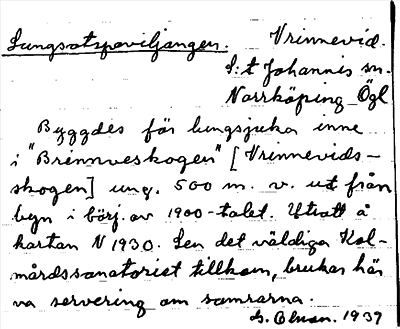 Lungsotspaviljangen. Vrinnevid.
S:t Johannis sn.
Norrköping Ögl
Byggdes för lungsjuka inne
i "Brinnveskogen" [Vrinnevids-
skogen] ung. 500 m. v. ut från
byn i börj. av 1900-talet. Utsatt å
kartan N 1930. Sen det väldiga Kol-
mårdssanatoriet tillkom, brukar här
va servering om somrarna.
1937